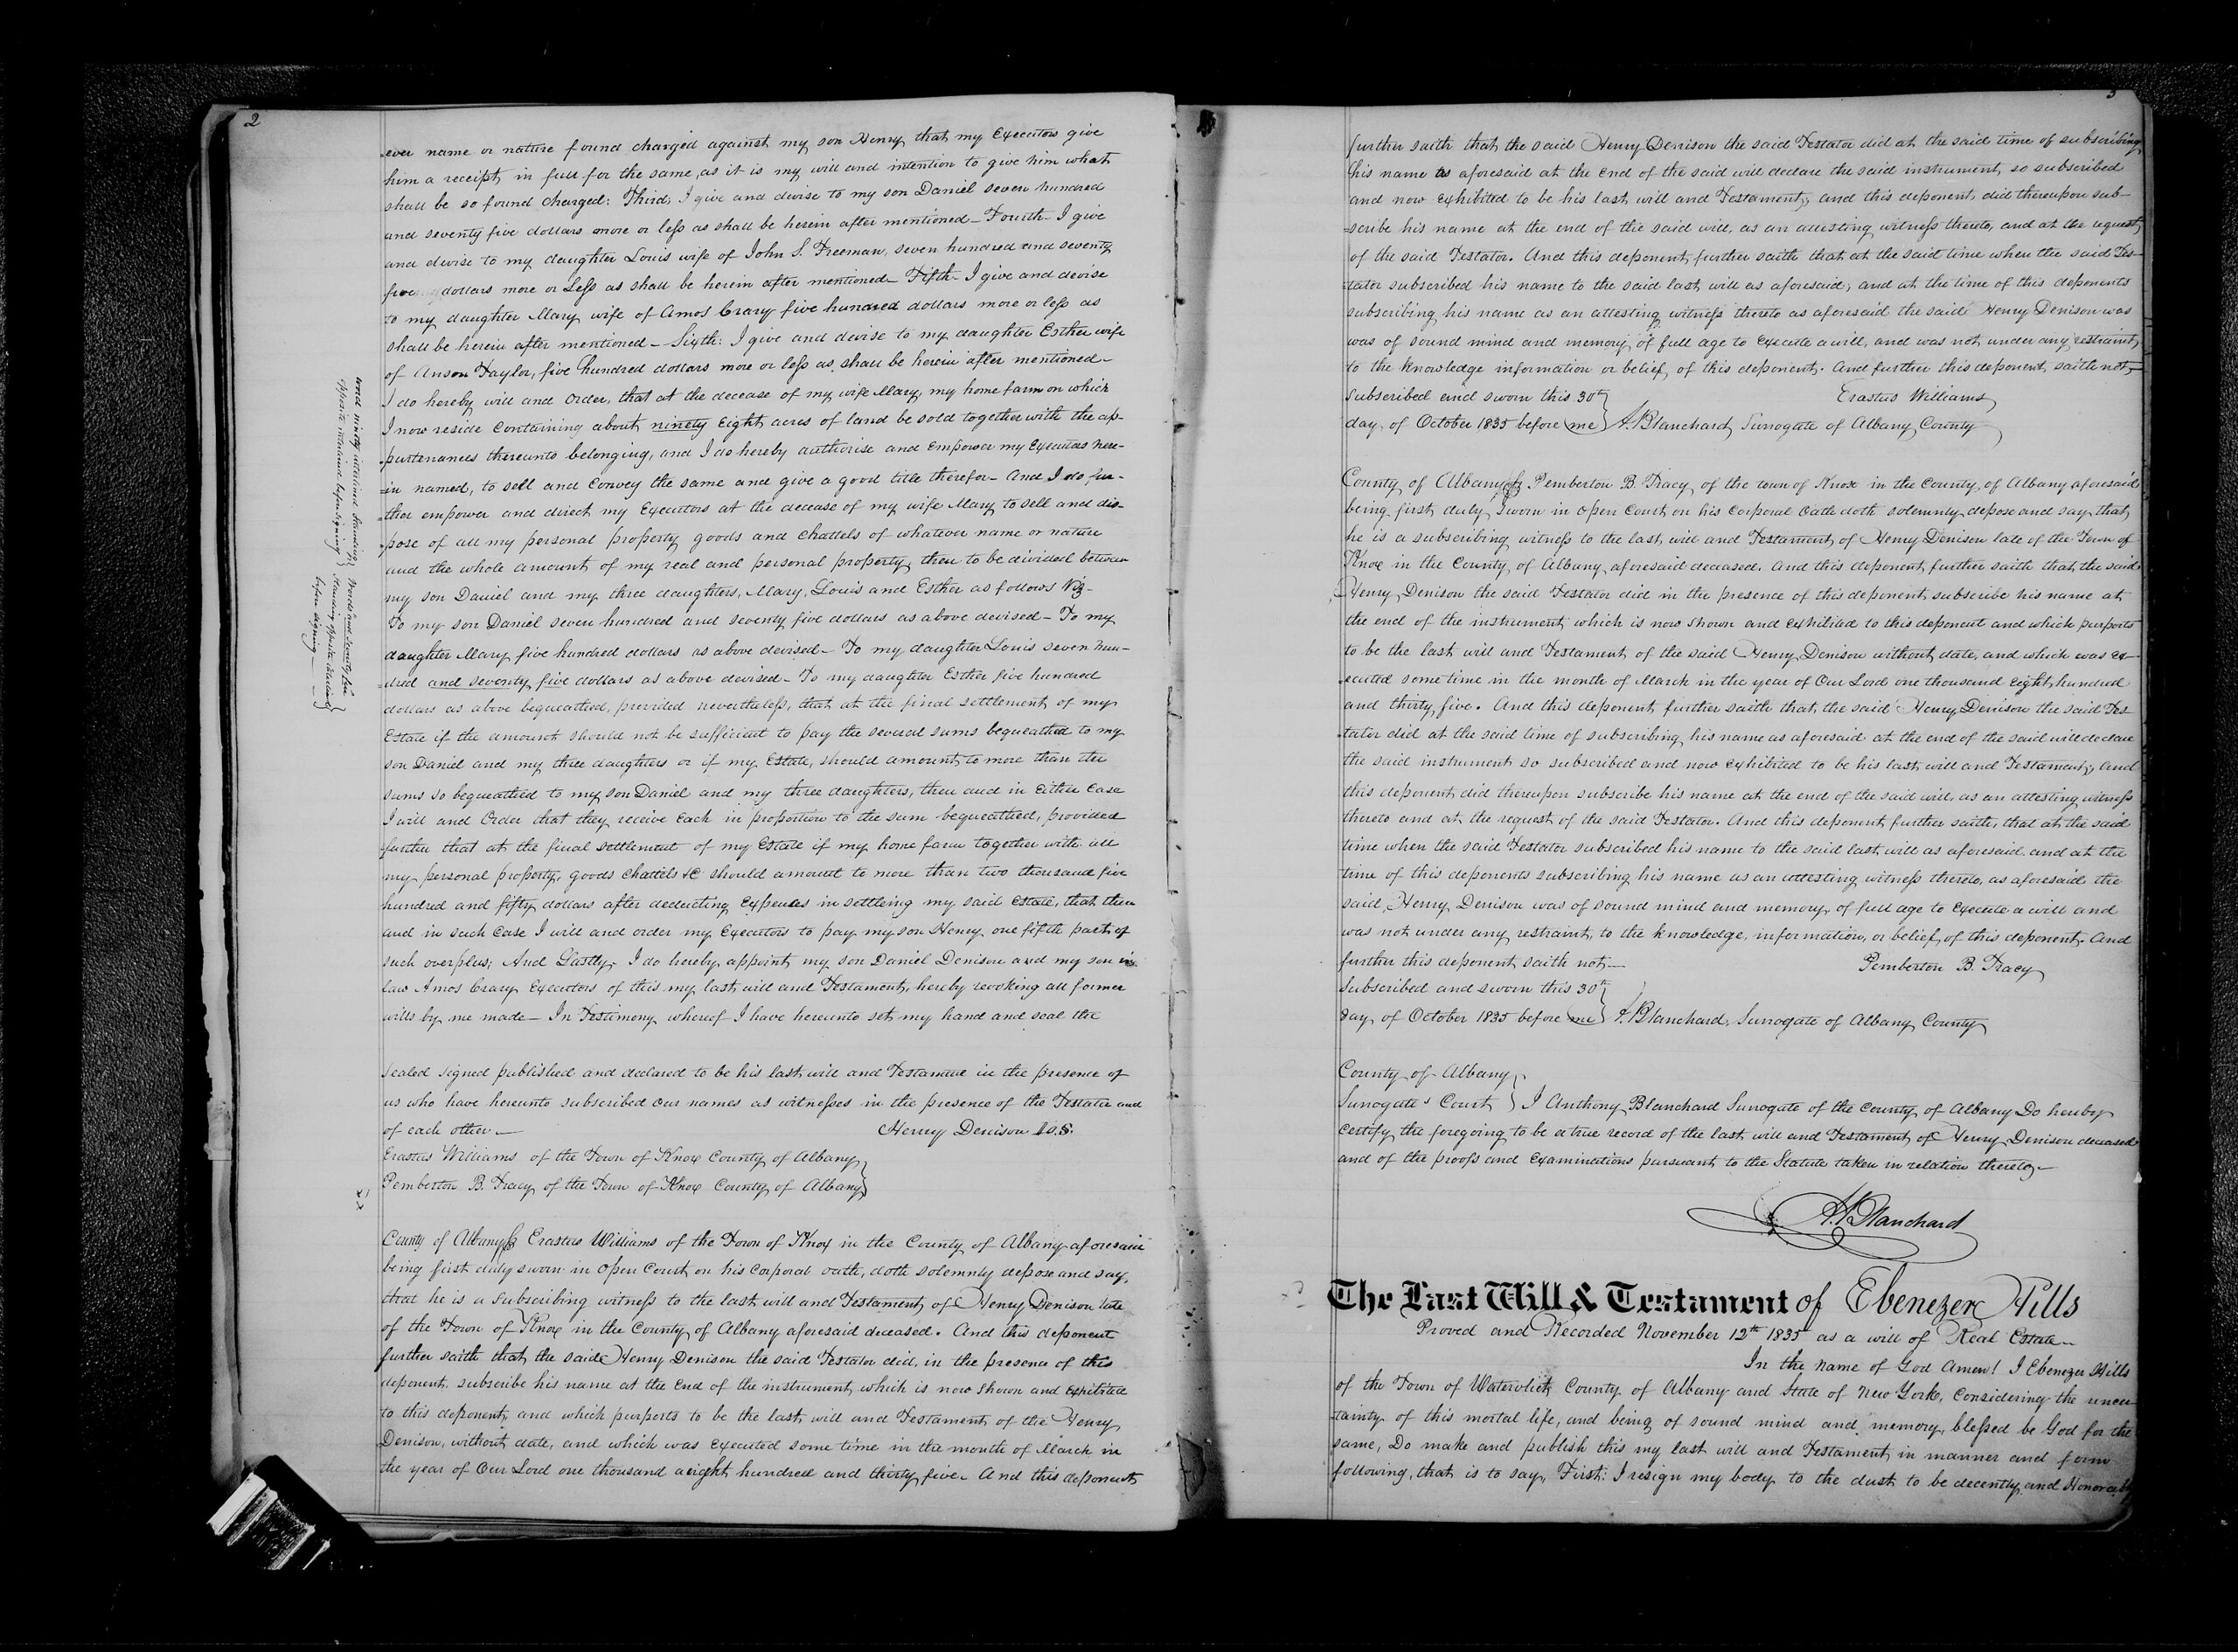 2
ever name or nature found charged against my son Henry that my Executors give
him a receipt in full for the same, as it is my will and intention to give him what
shall be so found charged: Third, I give and devise to my son Daniel seven hundred
and seventy five dollars more or less as shall be herein after mentioned — Fourth — I give
and devise to my daughter Louis wife of John S. Freeman, seven hundred and seventy
five dollars more or Less as shall be herein after mentioned — Fifth — I give and devise
to my daughter Mary wife of Amos Crary five hundred dollars more or less as
shall be herein after mentioned — Sixth: I give and devise to my daughter Esther wife
of Anson Taylor, five hundred dollars more or less as shall be herein after mentioned —
I do hereby will and order, that at the decease of my wife Mary, my home farm on which
I now reside containing about ninety Eight acres of land be sold together with the ap-
-purtenances thereunto belonging, and I do hereby authorise and Empower my Executors here-
-in named, to sell and Convey the same and give a good title therefor — And I do fur-
-ther empower and direct my Executors at the decease of my wife Mary to sell and dis-
-pose of all my personal property goods and chattels of whatever name or nature
and the whole amount of my real and personal property then to be divided between
my son Daniel and my three daughters, Mary, Louis and Esther as follows Viz —
To my son Daniel seven hundred and seventy five dollars as above devised — To my
daughter Mary five hundred dollars as above devised — To my daughter Louis seven hun-
-dred and seventy five dollars as above devised — To my daughter Esther five hundred
dollars as above bequeathed, provided nevertheless, that at the final settlement of my
Estate if the amount should not be sufficient to pay the several sums bequeathed to my
son Daniel and my three daughters or if my Estate, should amount to more than the
sums so bequeathed to my son Daniel and my three daughters, then and in Either Case
I will and Order that they receive Each in proportion to the sum bequeathed, provided
further that at the final settlement of my Estate if my home farm together with all
my personal property, goods chattels &c should amount to more than two thousand five
hundred and fifty dollars after deducting Expences in settleing my said Estate, that then
and in such Case I will and order my Executors to pay my son Henry one fifth part of
such overplus; And Lastly, I do hereby appoint my son Daniel Denison and my son in
law Amos Crary Executors of this my last will and Testament, hereby revoking all former
wills by me made — In Testimony whereof I have hereunto set my hand and seal the
Sealed signed published and declared to be his last will and Testament in the presence of
us who have hereunto subscribed our names as witnesses in the presence of the Testator and
of each other — Henry Denison L.S.
Erastus Williams of the Town of Knox County of Albany
Pemberton B. Tracy of the Town of Knox County of Albany
word ninety interlined standing
opposite interlined before signing
Words and seventy five
standing opposite interlined
before signing —
County of Albany ss Erastus Williams of the Town of Knox in the County of Albany aforesaid
being first duly sworn in Open Court on his Corporal oath, doth solemnly depose and say,
that he is a Subscribing witness to the last will and Testament of Henry Denison late
of the Town of Knox in the County of Albany aforesaid deceased. And this deponent
further saith that the said Henry Denison the said Testator did, in the presence of this
deponent, subscribe his name at the End of the instrument which is now shown and Exhibited
to this deponent, and which purports to be the last will and Testament of the Henry
Denison, without date, and which was Executed some time in the month of March in
the year of Our Lord one thousand aeight hundred and thirty five. And this deponent
3
further saith that the said Henry Denison the said Testator did at the said time of subscribing
his name as aforesaid at the End of the said will declare the said instrument so subscribed
and now Exhibited to be his last will and Testament; and this deponent did thereupon sub-
-scribe his name at the end of the said will, as an attesting witness thereto, and at the request
of the said Testator. And this deponent further saith that at the said time when the said Tes-
-tator subscribed his name to the said last will as aforesaid, and at the time of this deponents
subscribing his name as an attesting witness thereto as aforesaid the said Henry Denison was
was of sound mind and memory of full age to Execute a will, and was not under any restraint,
to the knowledge information or belief, of this deponent. And further this deponent saith not,—
Subscribed and sworn this 30th Erastus Williams
day of October 1835 before me A. Blanchard Surrogate of Albany County
County of Albany ss Pemberton B. Tracy of the town of Knox in the County of Albany aforesaid
being first duly Sworn in Open Court on his Corporal Oath doth solemnly depose and say that
he is a subscribing witness to the last will and Testament of Henry Denison late of the Town of
Knox in the County of Albany aforesaid deceased. And this deponent further saith that the said
Henry Denison the said Testator did in the presence of this deponent subscribe his name at
the end of the instrument which is now shown and exhibited to this deponent and which purports
to be the last will and Testament of the said Henry Denison without date, and which was ex-
-ecuted some time in the month of March in the year of Our Lord one thousand Eight hundred
and thirty five. And this deponent further saith that the said Henry Denison the said Tes-
-tator did at the said time of subscribing his name as aforesaid at the end of the said will declare
the said instrument so subscribed and now exhibited to be his last will and Testament; and
this deponent did thereupon subscribe his name at the end of the said will, as an attesting witness
thereto and at the request of the said Testator. And this deponent further saith, that at the said
time when the said Testator subscribed his name to the said last will as aforesaid and at the
time of this deponents subscribing his name as an attesting witness thereto, as aforesaid the
said Henry Denison was of sound mind and memory, of full age to Execute a will and
was not under any restraint, to the knowledge, information, or belief of this deponent. And
further this deponent saith not — Pemberton B. Tracy
Subscribed and sworn this 30th
day of October 1835 before me A. Blanchard, Surrogate of Albany County
County of Albany
Surrogate's Court I Anthony Blanchard Surrogate of the County of Albany Do hereby
Certify the foregoing to be a true record of the last will and Testament of Henry Denison deceased
and of the proofs and Examinations pursuant to the Statute taken in relation thereto —
A. Blanchard
The Last Will & Testament of Ebenezer Hills
Proved and Recorded November 12th 1835 as a will of Real Estate —
In the name of God Amen! I Ebenezer Hills
of the Town of Watervliet County of Albany and State of New York, Considering the uncer
-tainty of this mortal life, and being of sound mind and memory, blessed be God for the
same, Do make and publish this my last will and Testament in manner and form
following, that is to say, First: I resign my body to the dust to be decently and Honorably